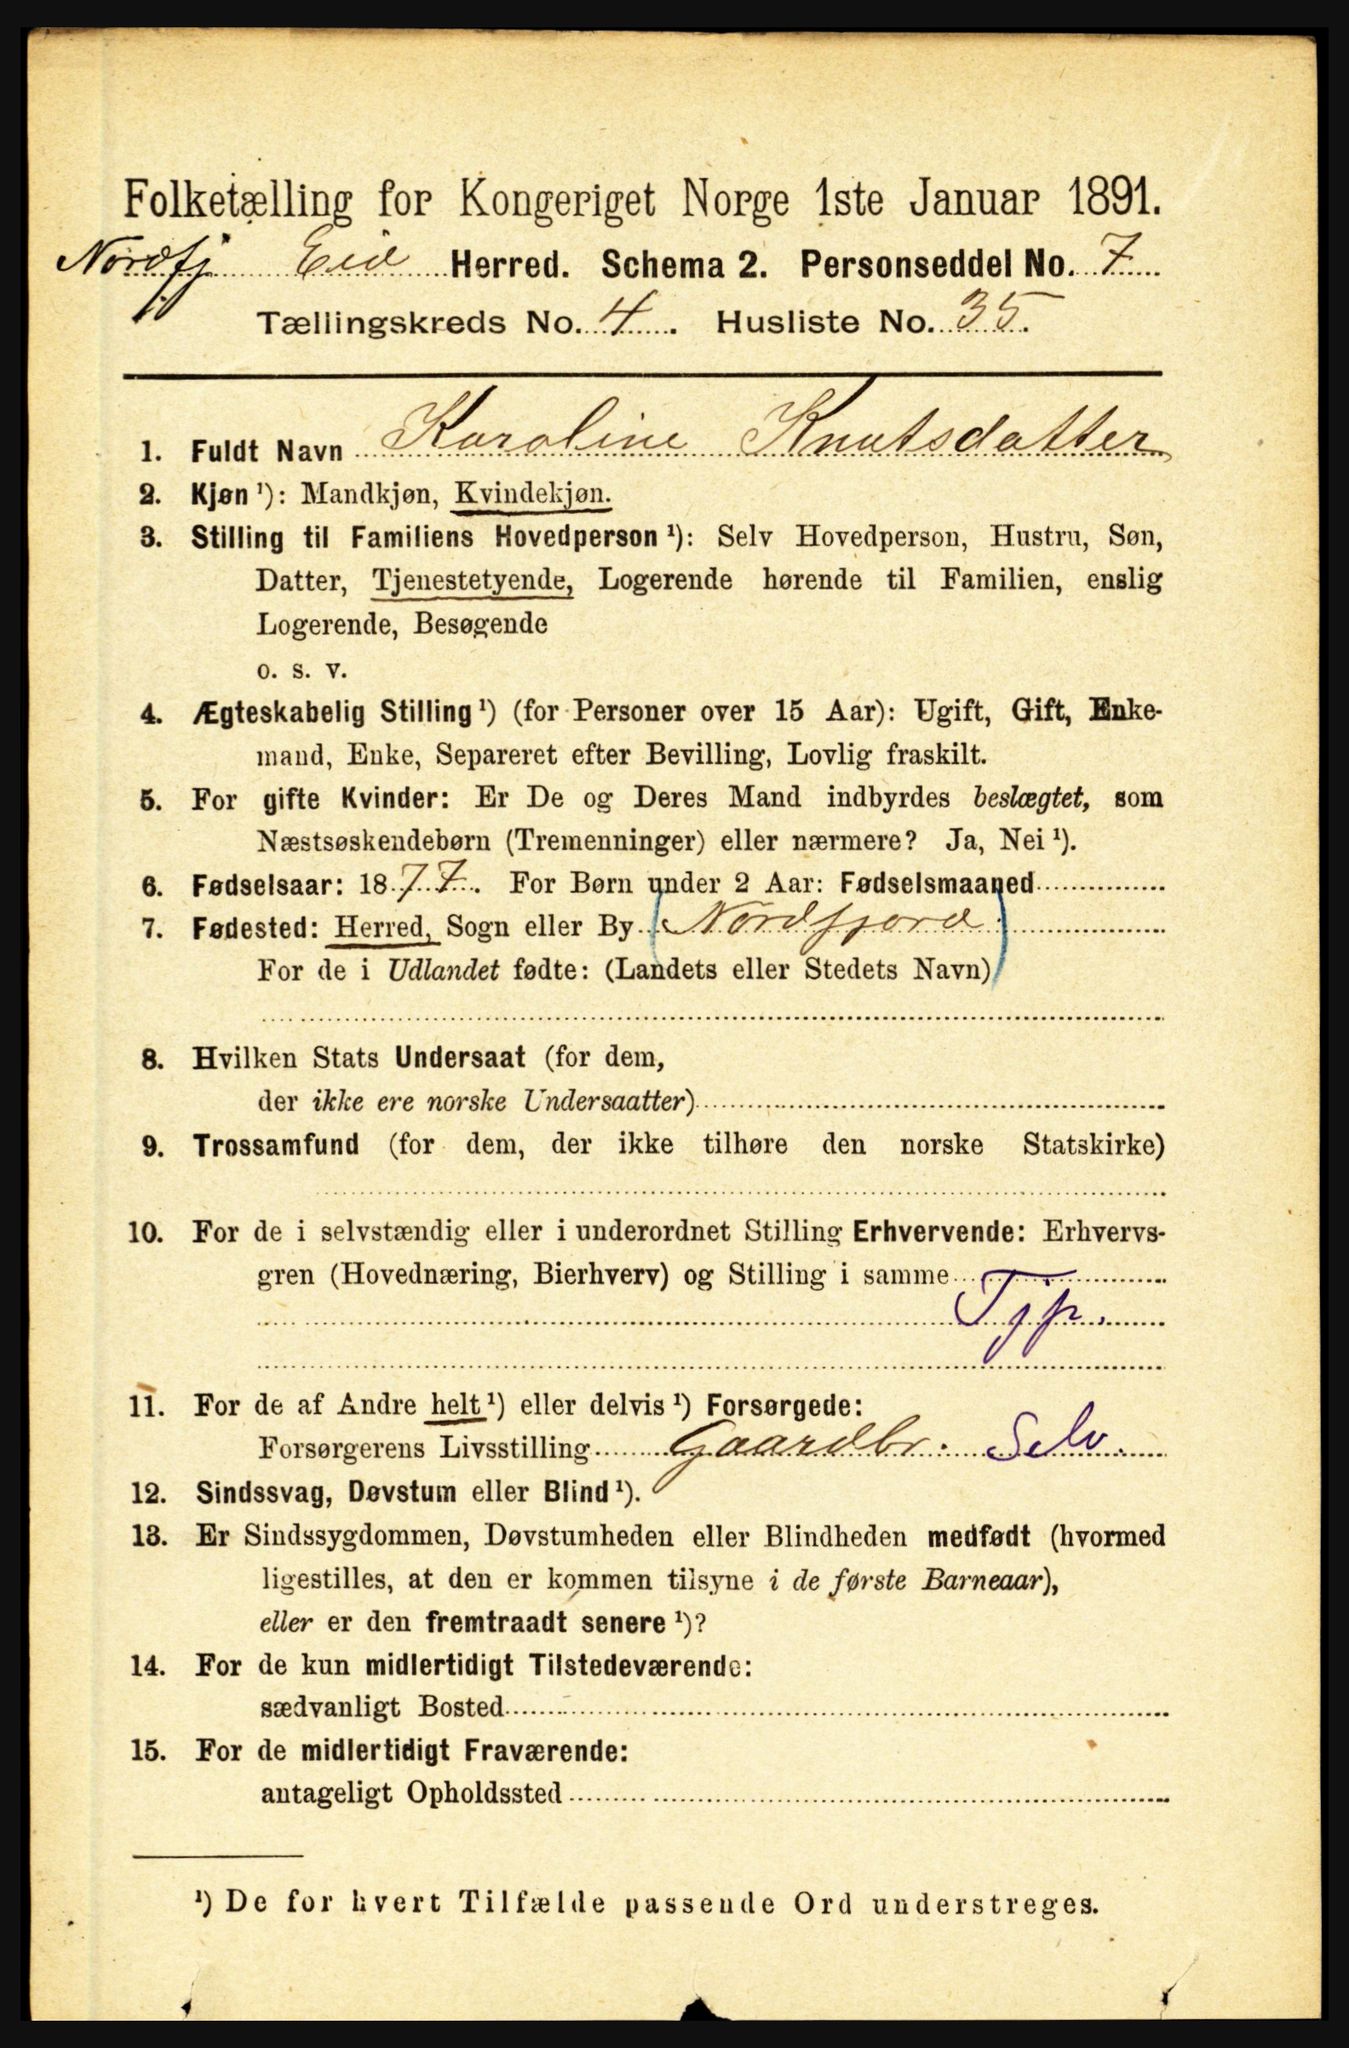 Folketælling for Kongeriget Norge 1ste Januar 1891.
Nordfj Eid Herred. Schema 2. Personseddel No. 7
Tællingskreds No. 4. Husliste No. 35.
1. Fuldt Navn Karoline Knutsdatter
2. Kjøn ¹): Mandkjøn, Kvindekjøn.
3. Stilling til Familiens Hovedperson ¹): Selv Hovedperson, Hustru, Søn,
Datter, Tjenestetyende, Logerende hørende til Familien, enslig
Logerende, Besøgende
o. s. v.
4. Ægteskabelig Stilling ¹) (for Personer over 15 Aar): Ugift, Gift, Enke-
mand, Enke, Separeret efter Bevilling, Lovlig fraskilt.
5. For gifte Kvinder: Er De og Deres Mand indbyrdes beslægtet, som
Næstsøskendebørn (Tremenninger) eller nærmere? Ja, Nei ¹).
6. Fødselsaar: 1877. For Børn under 2 Aar: Fødselsmaaned
7. Fødested: Herred, Sogn eller By (Nordfjord)
For de i Udlandet fødte: (Landets eller Stedets Navn)
8. Hvilken Stats Undersaat (for dem,
der ikke ere norske Undersaatter)
9. Trossamfund (for dem, der ikke tilhøre den norske Statskirke)
10. For de i selvstændig eller i underordnet Stilling Erhvervende: Erhvervs-
gren (Hovednæring, Bierhverv) og Stilling i samme
Tjp.
11. For de af Andre helt ¹) eller delvis ¹) Forsørgede:
Forsørgerens Livsstilling Gaardbr. Selv.
12. Sindssvag, Døvstum eller Blind ¹).
13. Er Sindssygdommen, Døvstumheden eller Blindheden medfødt (hvormed
ligestilles, at den er kommen tilsyne i de første Barneaar),
eller er den fremtraadt senere ¹)?
14. For de kun midlertidigt Tilstedeværende:
sædvanligt Bosted
15. For de midlertidigt Fraværende:
antageligt Opholdssted
¹) De for hvert Tilfælde passende Ord understreges.